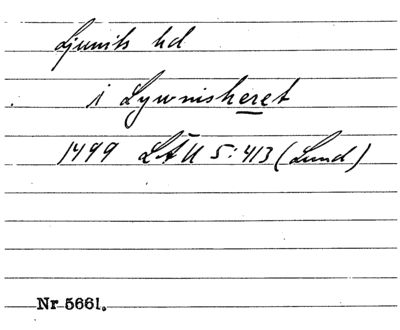 Ljunits hd
i Lywnisheret
1499 LÄU 5:413 (Lund)
Nr 5661.